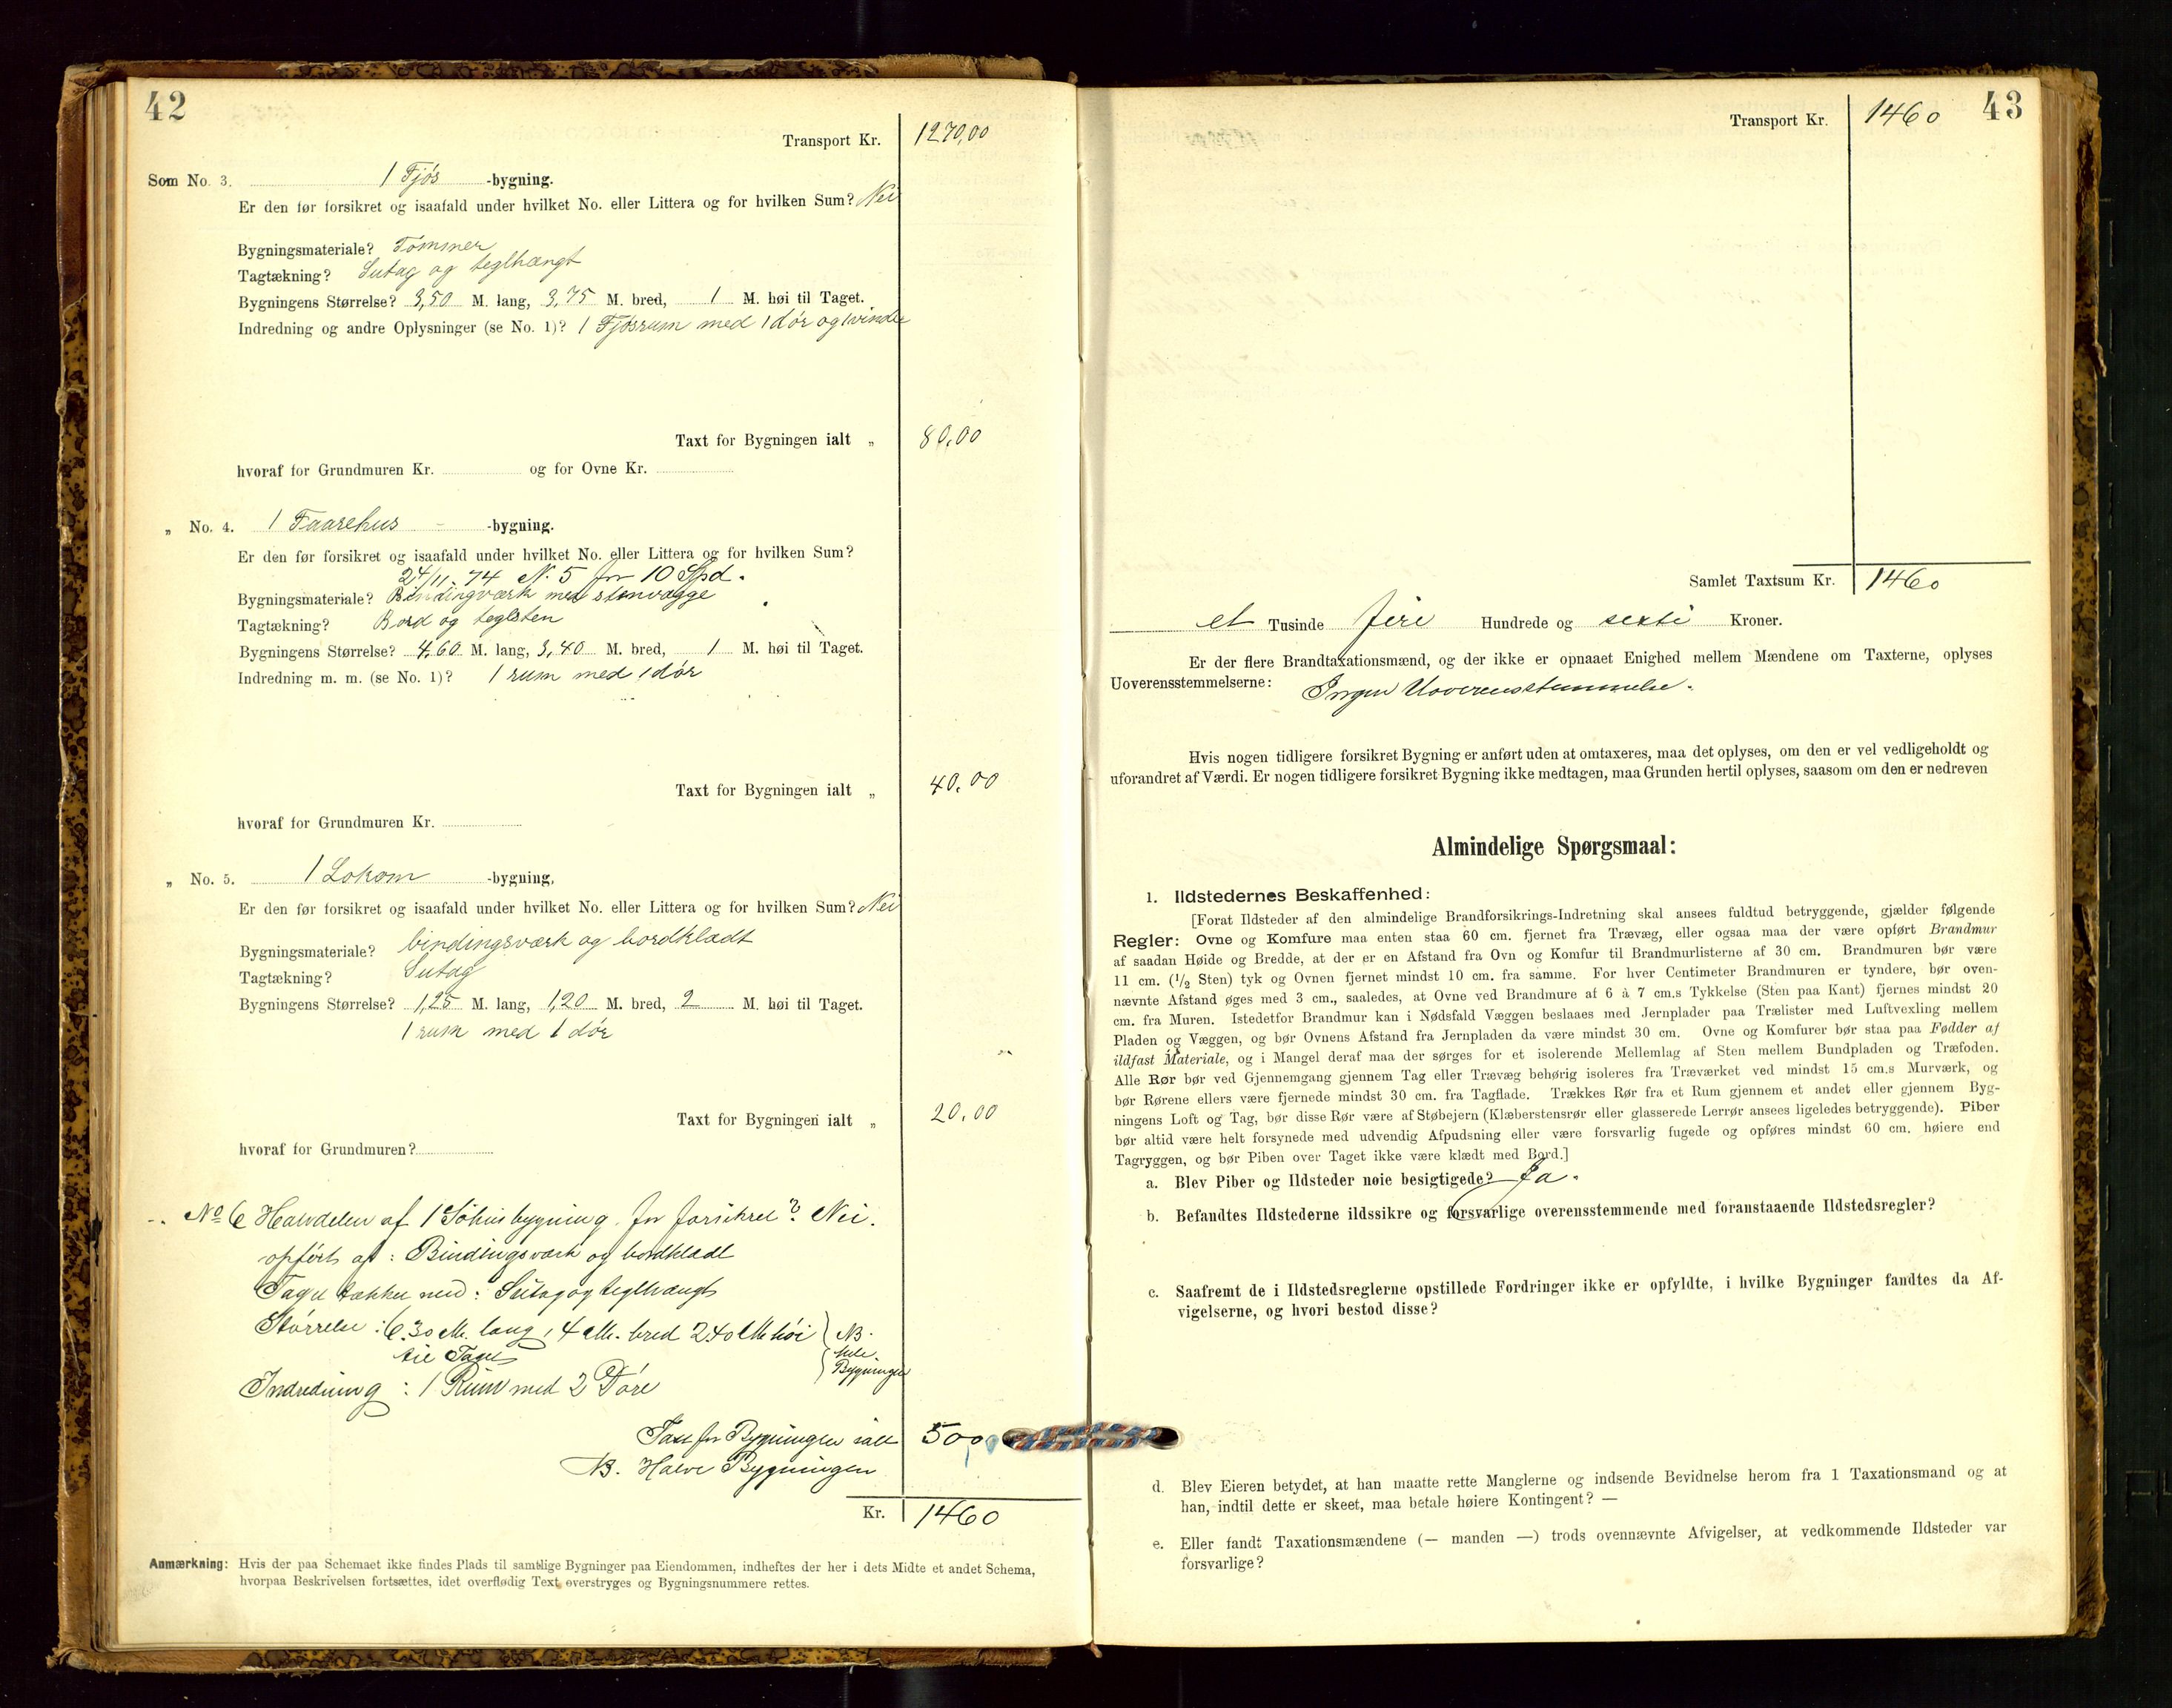 42
Transport Kr. 1270,00
Som No. 3. 1 Fjøs -bygning.
Er den før forsikret og isaafald under hvilket No. eller Littera og for hvilken Sum? Nei
Bygningsmateriale? Tømmer
Tagtækning? Sutag og teglhængt
Bygningens Størrelse? 3,50 M. lang, 3,75 M. bred, 1 M. høi til Taget.
Indredning og andre Oplysninger (se No. 1)? 1 Fjøsrum med 1 dør og 1 vindu
Taxt for Bygningen ialt „ 80,00
hvoraf for Grundmuren Kr. og for Ovne Kr.
„ No. 4. 1 Faarehus -bygning.
Er den før forsikret og isaafald under hvilket No. eller Littera og for hvilken Sum?
24/11-74 N. 5 for 10 Spd.
Bygningsmateriale? Bindingværk med stenvægge
Tagtækning? Bord og teglsten
Bygningens Størrelse? 4,60 M. lang, 3,40 M. bred, 1 M. høi til Taget.
Indredning m. m. (se No. 1)? 1 rum med 1 dør
Taxt for Bygningen ialt „ 40,00
hvoraf for Grundmuren Kr.
„ No. 5. 1 Lokom -bygning,
Er den før forsikret og isaafald under hvilket No. eller Littera og for hvilken Sum? Nei
Bygningsmateriale? bindingsværk og bordklædt
Tagtækning? Sutag
Bygningens Størrelse? 1,25 M. lang, 1,20 M. bred, 2 M. høi til Taget.
1 rum med 1 dør
Taxt for Bygningen ialt „ 20,00
hvoraf for Grundmuren?
No 6 Halvdelen af 1 Søhusbygning, før forsikret? Nei.
opført af: Bindingsværk og bordklædt
Taget tækket med: Sutag og teglhængt
Størrelse: 6.30 M. lang, 4 M. bred 2.40 M høi
til Taget
NB. hele Bygningen
Indredning: 1 Rum med 2 Døre
Taxt for Bygningen ialt 50,00
NB. Halve Bygningen
Kr. 1460
Anmærkning: Hvis der paa Schemaet ikke findes Plads til samtlige Bygninger paa Eiendommen, indheftes der her i dets Midte et andet Schema,
hvorpaa Beskrivelsen fortsættes, idet overflødig Text overstryges og Bygningsnummere rettes.
43
Transport Kr. 1460
Samlet Taxtsum Kr. 1460
et Tusinde fire Hundrede og sexti Kroner.
Er der flere Brandtaxationsmænd, og der ikke er opnaaet Enighed mellem Mændene om Taxterne, oplyses
Uoverensstemmelserne: Ingen Uoverensstemmelse.
Hvis nogen tidligere forsikret Bygning er anført uden at omtaxeres, maa det oplyses, om den er vel vedligeholdt og
uforandret af Værdi. Er nogen tidligere forsikret Bygning ikke medtagen, maa Grunden hertil oplyses, saasom om den er nedreven
Almindelige Spørgsmaal:
1. Ildstedernes Beskaffenhed:
[Forat Ildsteder af den almindelige Brandforsikrings-Indretning skal ansees fuldtud betryggende, gjælder følgende
Regler: Ovne og Komfure maa enten staa 60 cm. fjernet fra Trævæg, eller ogsaa maa der være opført Brandmur
af saadan Høide og Bredde, at der er en Afstand fra Ovn og Komfur til Brandmurlisterne af 30 cm. Brandmuren bør være
11 cm. (1/2 Sten) tyk og Ovnen fjernet mindst 10 cm. fra samme. For hver Centimeter Brandmuren er tyndere, bør oven-
nævnte Afstand øges med 3 cm., saaledes, at Ovne ved Brandmure af 6 à 7 cm.s Tykkelse (Sten paa Kant) fjernes mindst 20
cm. fra Muren. Istedetfor Brandmur kan i Nødsfald Væggen beslaaes med Jernplader paa Trælister med Luftvexling mellem
Pladen og Væggen, og bør Ovnens Afstand fra Jernpladen da være mindst 30 cm. Ovne og Komfurer bør staa paa Fødder af
ildfast Materiale, og i Mangel deraf maa der sørges for et isolerende Mellemlag af Sten mellem Bundpladen og Træfoden.
Alle Rør bør ved Gjennemgang gjennem Tag eller Trævæg behørig isoleres fra Træværket ved mindst 15 cm.s Murværk, og
bør Rørene ellers være fjernede mindst 30 cm. fra Tagflade. Trækkes Rør fra et Rum gjennem et andet eller gjennem Byg-
ningens Loft og Tag, bør disse Rør være af Støbejern (Klæberstensrør eller glasserede Lerrør ansees ligeledes betryggende). Piber
bør altid være helt forsynede med udvendig Afpudsning eller være forsvarlig fugede og opføres mindst 60 cm. høiere end
Tagryggen, og bør Piben over Taget ikke være klædt med Bord.]
a. Blev Piber og Ildsteder nøie besigtigede? Ja.
b. Befandtes Ildstederne ildssikre og forsvarlige overensstemmende med foranstaaende Ildstedsregler?
c. Saafremt de i Ildstedsreglerne opstillede Fordringer ikke er opfyldte, i hvilke Bygninger fandtes da Af-
vigelserne, og hvori bestod disse?
d. Blev Eieren betydet, at han maatte rette Manglerne og indsende Bevidnelse herom fra 1 Taxationsmand og at
han, indtil dette er skeet, maa betale høiere Kontingent? —
e. Eller fandt Taxationsmændene (— manden —) trods ovennævnte Afvigelser, at vedkommende Ildsteder var
forsvarlige?